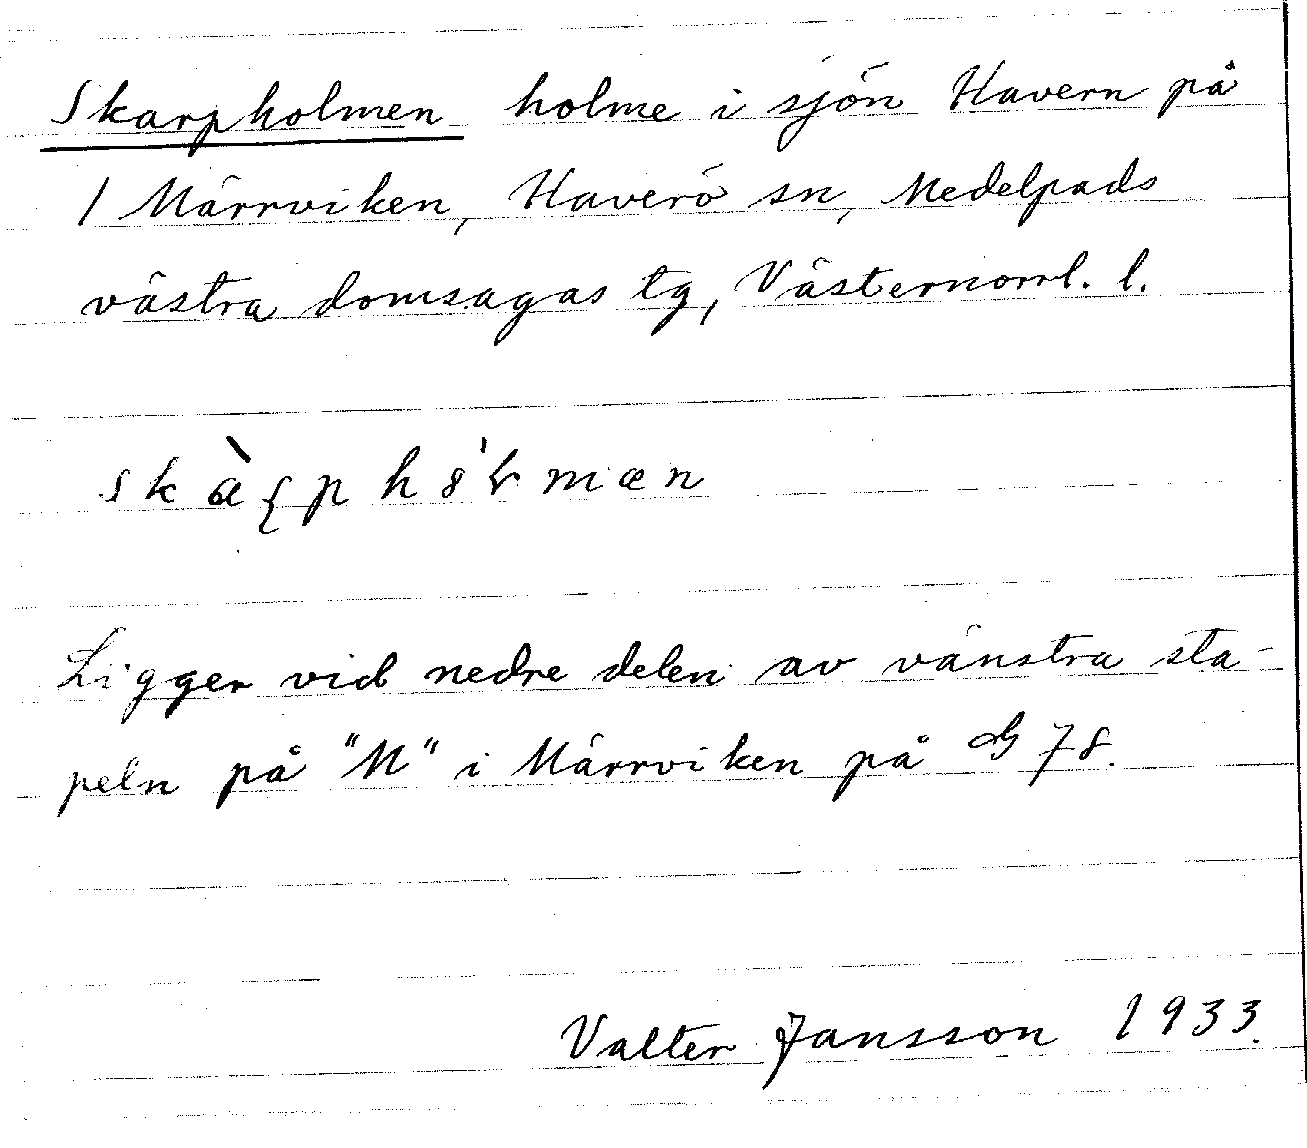 Skarpholmen holme i sjön Havern på
1 Märrviken, Haverö sn, Medelpads
västra domsagas tg, Västernorrl. l.
Ligger vid nedre delen av vänstra sta-
peln på "M" i Märrviken på G 78.
Valter Jansson 1933.